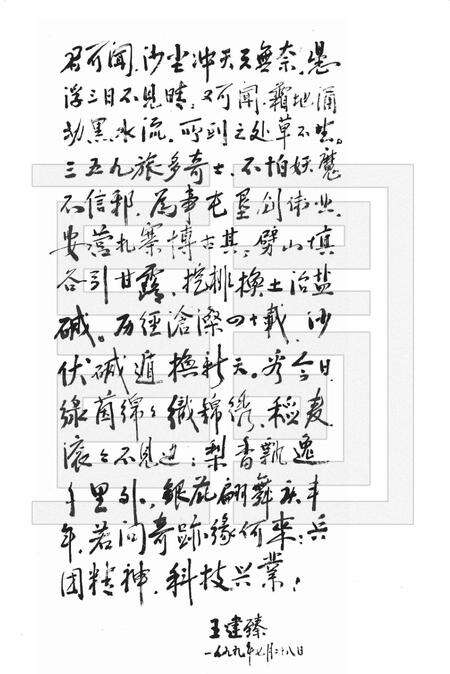 君可闻,沙尘冲天天無奈,悬
浮三日不見晴;又可闻,霜地涌
动黑水流,所到之处草不生。
三五九旅多奇士,不怕妖魔
不信邪,為事屯墾创伟业,
安营扎寨博古其;劈山填
谷引甘露,挖排换土治盐
碱。历經滄桑四十載,沙
伏碱遁撫新天。看今日,
绿茵绵々織錦绣,稻麦
滚々不見边;梨香飄逸
千里外,銀花翩舞庆丰
年,若问奇跡缘何來:兵
团精神,科技兴業!
王建臻
一九九九年七月二十八日